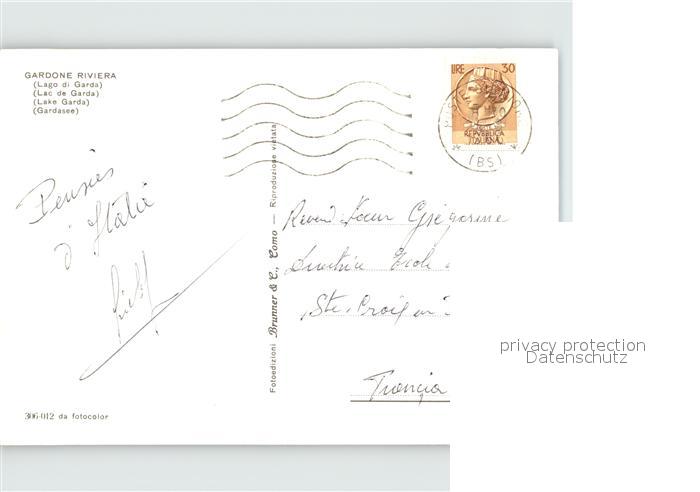 GARDONE RIVIERA
(Lago di Garda)
(Lac de Garda)
(Lake Garda)
(Gardasee)
LIRE 30
REPVBBLICA
ITALIANA
(BS)
Pensées
d'Italie
Fotoedizioni Brunner & C., Como — Riproduzione vietata
Révend. Sœur Grégorine
Directrice Ecole
Ste. Croix en
Francia
306-012 da fotocolor
privacy protection
Datenschutz